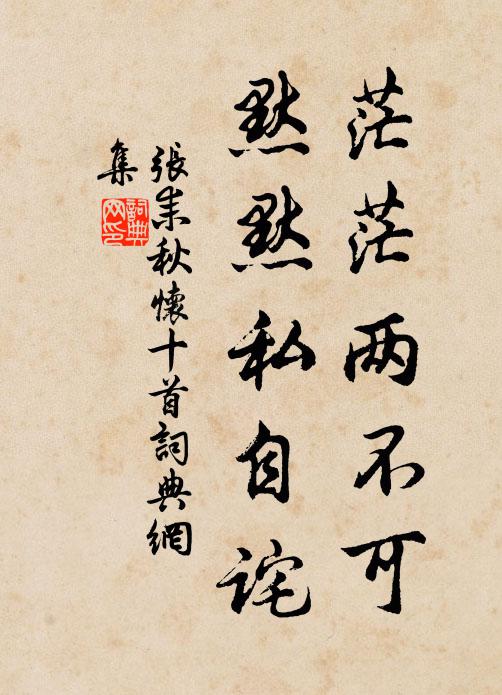 茫茫两不可
默默私自詫
張耒秋懷十首詞典網
集
詞典
网印